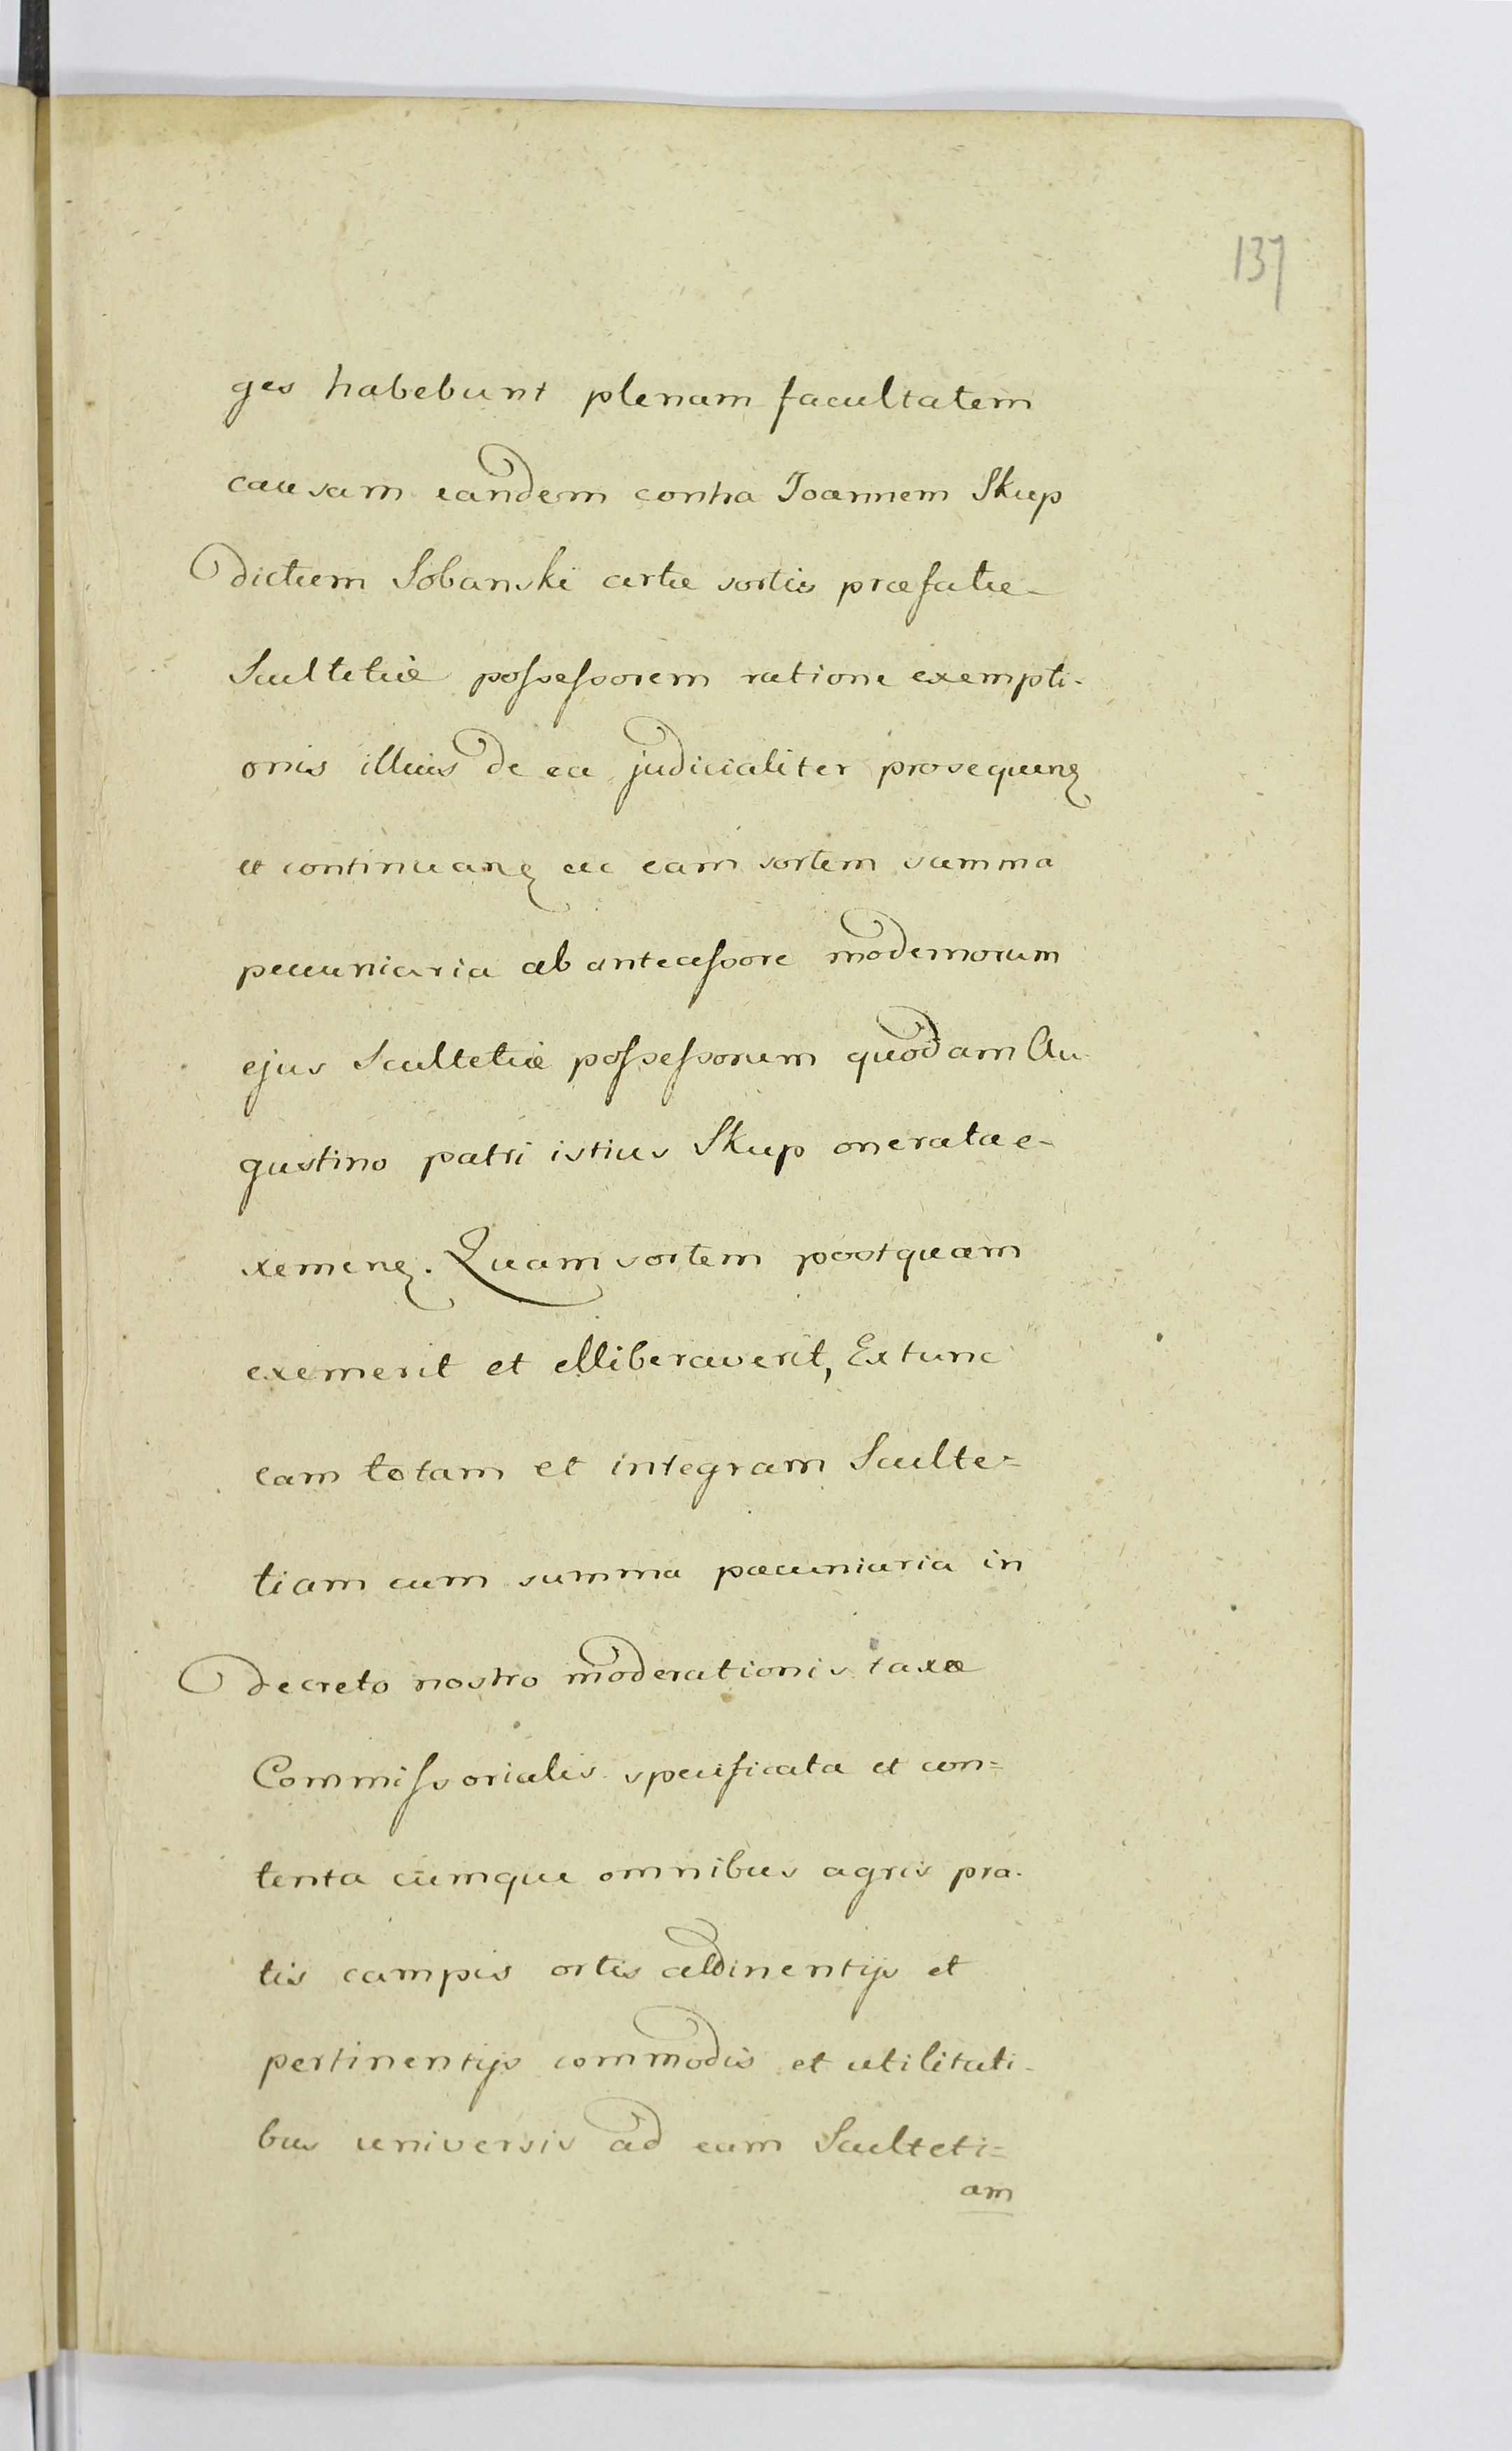 137
ges habebunt plenam facultatem
causam eandem contra Joannem Skup
dictum Sobanski certæ sortis præfatæ-
Scultetiæ possessorem ratione exempti-
onis illius de ea judicialiter prosequenꝫ
et continuanꝫ ac eam sortem summa
pecuniaria ab antecessore modernorum
ejus Scultetiæ possessorum quodam Au-
gustino patri istius Skup onerata e-
xemenꝫ. Quam sortem postquam
exemerit et elliberaverit, Extunc
eam totam et integram Sculte=
tiam cum summa pæcuniaria in
decreto nostro moderationis taxæ
Commissorialis specificata et con=
tenta cumque omnibus agris pra-
tis campis ortis addinentijs et
pertinentijs commodis et utilitati-
bus universis ad eam Sculteti=
am